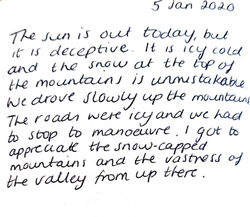 5 Jan 2020
The sun is out today, but
it is deceptive. It is icy cold
and the snow at the top of
the mountains is unmistakable.
We drove slowly up the mountains
The roads were icy and we had
to stop to manoeuvre. I got to
appreciate the snow-capped
mountains and the vastness of
the valley from up there.